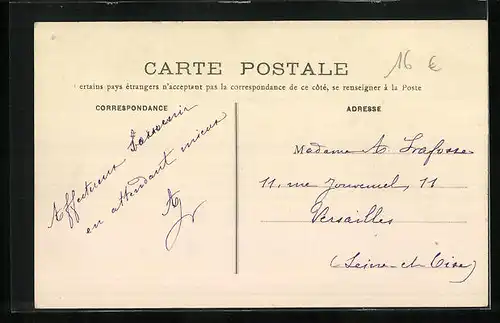 16 €
CARTE POSTALE
ertains pays étrangers n'acceptent pas la correspondance de ce côté, se renseigner à la Poste
CORRESPONDANCE
ADRESSE
Affectueux Souvenir
en attendant mieux
Madame A Lafosse
11, rue Jouvencel, 11
Versailles
(Seine et Oise)